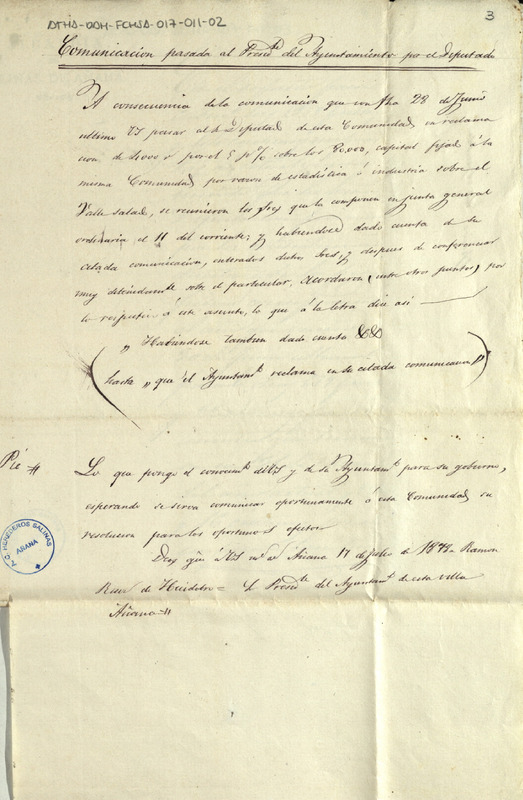 ATHA-DAH-FCHSA-017-011-02
3
Comunicacion pasada al Presid.te del Ayuntamiento por el Deputado
A consecuencia de la comunicacion que con fha 28 de Junio
ultimo VS pasar al Sr Deputado de esta Comunidad en reclama
cion de 4000 r.s por el 5 p% sobre los 80.000, capital fijado á la
misma Comunidad por razon de estadistica ó industria sobre el
Valle salado, se reunieron los Sres que la componen en junta general
ordinaria el 11 del corriente; y habiendose dado cuenta de su
citada comunicacion, enterados dichos Sres, y despues de conferenciar
muy detenidamente sobre el particular, Acordaron (entre otros puntos) por
lo respectivo á este asunto, lo que á la letra dice asi
„ Habiendose tambien dado cuenta &&
hasta „ que el Ayuntam.to reclama en su citada comunicacion"
Pié #
Lo que pongo el conocim.to de VS y de su Ayuntam.to para su gobierno,
esperando se sirva comunicar oportunamente á esta Comunidad su
resolucion para los oportunos efectos
Dios gũe á VS m.s a.s Añana 17 de Julio de Ramon
Ruiz de = Sr Presid.te del Ayuntam.to de esta villa
Añana =
A.C. HEREDEROS SALINAS
AÑANA